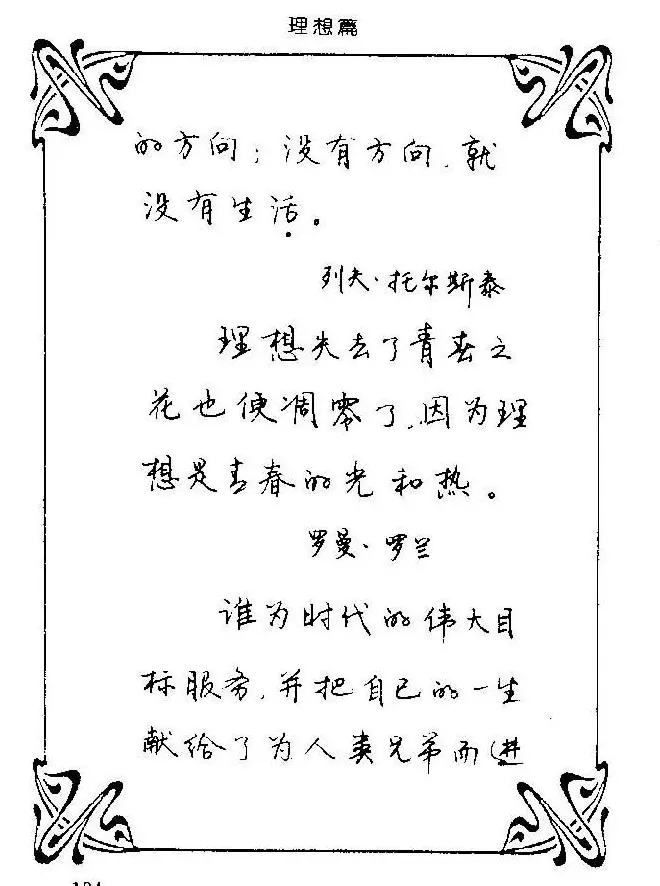 理想篇
的方向；没有方向，就
没有生活。
列夫·托尔斯泰
理想失去了青春之
花也便凋零了，因为理
想是青春的光和热。
罗曼·罗兰
谁为时代的伟大目
标服务，并把自己的一生
献给了为人类兄弟而进